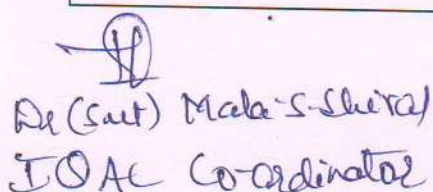 Dr (Smt) Mala-S-Shiral
IQAC Co-ordinator